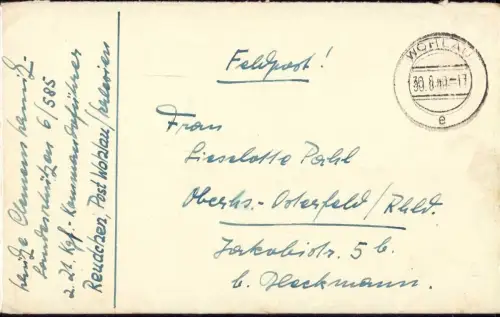 Feldpost!
WOHLAU
30.8.40.-17
e
Frau
Lieselotte Pahl
Oberhs.-Osterfeld/Rhld.
Jakobistr. 5 b.
b. Heckmann.
Clemens
Landesschützen 6/585
z. Zt. Kgf.-Kommandoführer
Reudchen, Post Wohlau/Schlesien